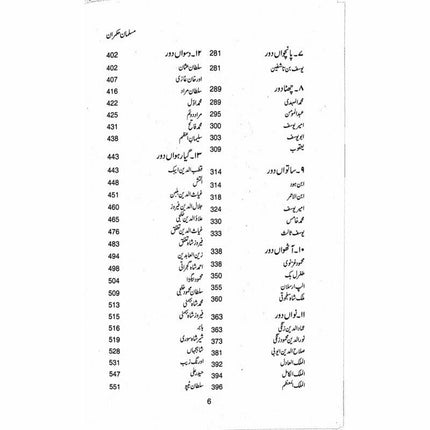 مسلمان حکمران
۷۔ پانچواں دور 281
یوسف بن تاشفین 281
۸۔ چھٹا دور 289
محمد المہدی 289
عبدالمومن
امیر یوسف
ابو یوسف 303
یعقوب 309
۹۔ ساتواں دور 314
ابن ہود 314
ابن الاحمر 318
امیر یوسف 324
محمد خامس 330
یوسف ثالث 333
۱۰۔ آٹھواں دور 338
محمود غزنوی 338
طغرل بک 350
الپ ارسلان 355
ملک شاہ سلجوقی 360
۱۱۔ نواں دور 363
عماد الدین زنگی 363
نور الدین محمود زنگی 367
صلاح الدین ایوبی 381
الملک العادل 392
الملک الکامل 394
الملک المعظم 396
۱۲۔ دسواں دور 402
سلطان عثمان 402
اورخان غازی 407
سلطان مراد 416
محمد اول 422
مراد دوئم 425
محمد فاتح 431
سلیمان اعظم 438
۱۳۔ گیارہواں دور 443
قطب الدین ایبک 443
التمش 448
غیاث الدین بلبن 451
جلال الدین فیروز 460
علاؤ الدین خلجی 465
غیاث الدین تغلق 476
فیروز شاہ تغلق 483
زین العابدین 494
احمد شاہ گجراتی 498
محمود گاواں 504
سلطان محمود خلجی 509
محمد شاہ بہمنی 513
فیروز شاہ بہمنی 515
بابر
شیر شاہ سوری 519
شاہجہاں 528
اورنگ زیب 531
حیدر علی 547
سلطان ٹیپو 551
6